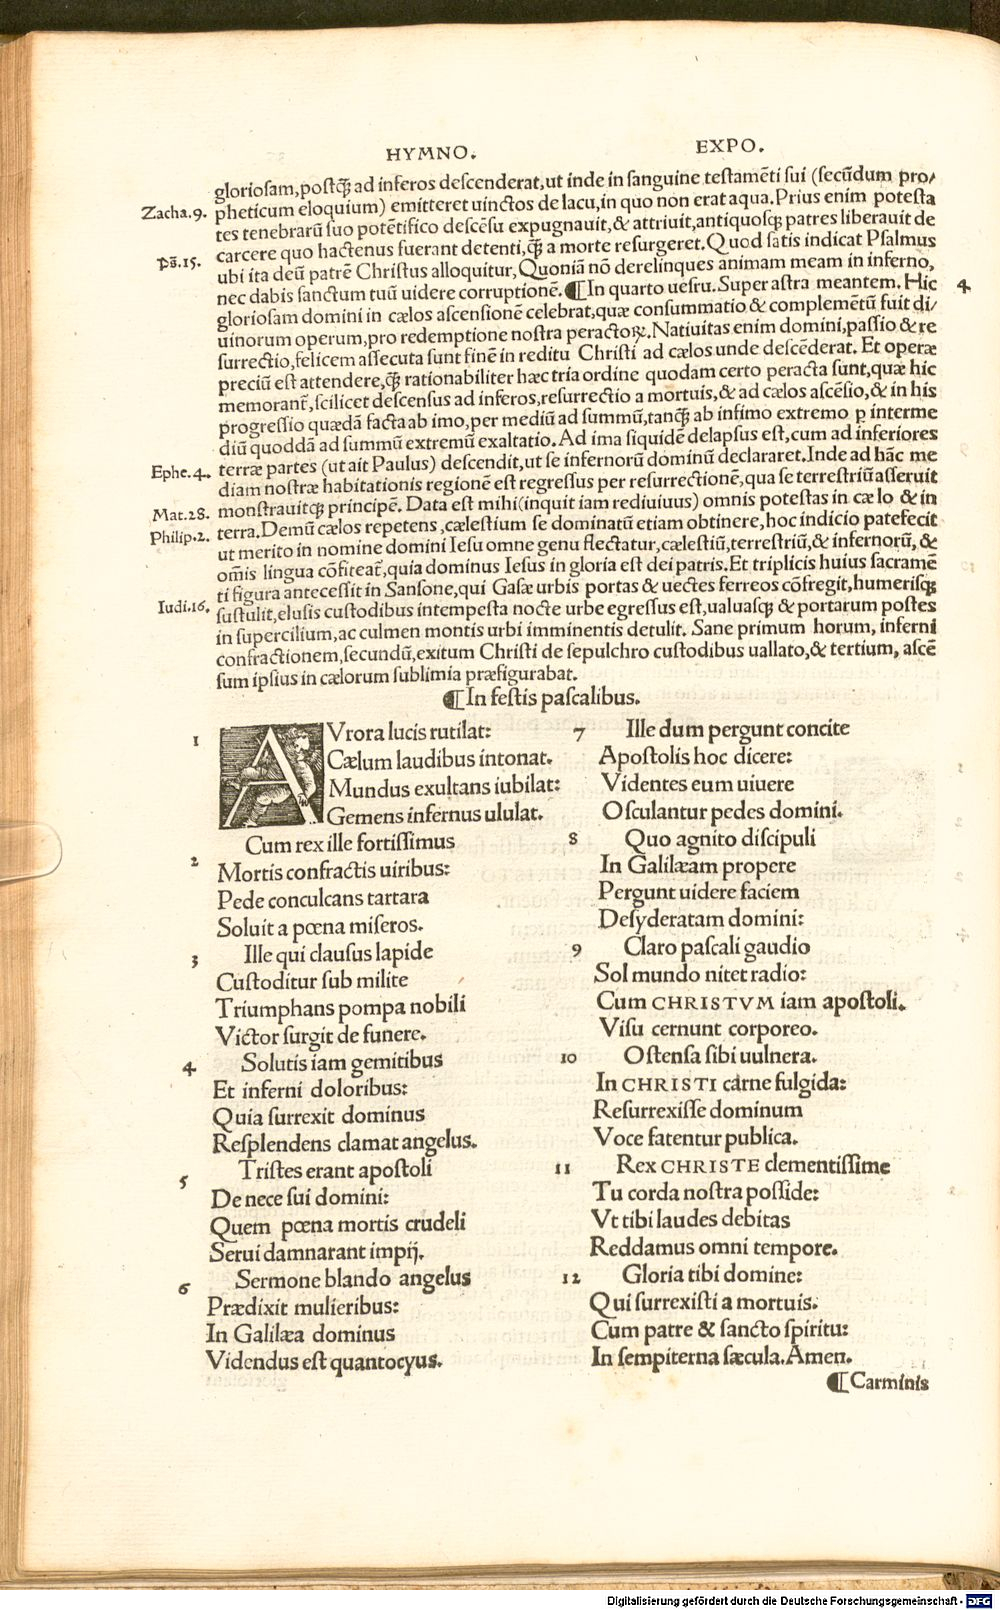 HYMNO. EXPO.
gloriosam,postq̃ ad inferos descenderat,ut inde in sanguine testamẽti sui (secũdum pro/
Zacha.9. pheticum eloquium) emitteret uinctos de lacu,in quo non erat aqua.Prius enim potesta
tes tenebrarũ suo potẽtifico descẽsu expugnauit,& attriuit,antiquosq; patres liberauit de
carcere quo hactenus fuerant detenti,q̃ a morte resurgeret.Quod satis indicat Psalmus
Ps̃.15. ubi ita deũ patrẽ Christus alloquitur,Quoniã nõ derelinques animam meam in inferno,
nec dabis sanctum tuũ uidere corruptionẽ.¶In quarto uesru.Super astra meantem.Hic 4
gloriosam domini in cælos ascensionẽ celebrat,quæ consummatio & complemẽtũ fuit di/
uinorum operum,pro redemptione nostra peractoꝝ.Natiuitas enim domini,passio & re
surrectio,felicem assecuta sunt finẽ in reditu Christi ad cælos unde descẽderat. Et operæ
preciũ est attendere,q̃ rationabiliter hæc tria ordine quodam certo peracta sunt,quæ hic
memorant̃,scilicet descensus ad inferos,resurrectio a mortuis,& ad cælos ascẽsio,& in his
progressio quædã facta ab imo,per mediũ ad summũ,tanq̃ ab infimo extremo ꝑ interme
diũ quoddã ad summũ extremũ exaltatio.Ad ima siquidẽ delapsus est,cum ad inferiores
Ephe.4. terræ partes (ut ait Paulus) descendit,ut se infernorũ dominũ declararet.Inde ad hãc me
diam nostræ habitationis regionẽ est regressus per resurrectionẽ,qua se terrestriũ asseruit
Mat.28. monstrauitq; principẽ. Data est mihi(inquit iam rediuiuus) omnis potestas in cælo & in
Philip.2. terra.Demũ cælos repetens,cælestium se dominatũ etiam obtinere,hoc indicio patefecit
ut merito in nomine domini Iesu omne genu flectatur,cælestiũ,terrestriũ,& infernorũ, &
om̃is lingua cõfiteat̃,quia dominus Iesus in gloria est dei patris.Et triplicis huius sacramẽ
ti figura antecessit in Sansone,qui Gasæ urbis portas & uectes ferreos cõfregit,humerisq;
Iudi.16. sustulit,elusis custodibus intempesta nocte urbe egressus est,ualuasq; & portarum postes
in supercilium,ac culmen montis urbi imminentis detulit. Sane primum horum, inferni
confractionem,secundũ,exitum Christi de sepulchro custodibus uallato,& tertium, ascẽ
sum ipsius in cælorum sublimia præfigurabat.
¶In festis pascalibus.
1 AVrora lucis rutilat:
Cælum laudibus intonat.
Mundus exultans iubilat:
Gemens infernus ululat.
2 Cum rex ille fortissimus
Mortis confractis uiribus:
Pede conculcans tartara
Soluit a pœna miseros.
3 Ille qui clausus lapide
Custoditur sub milite
Triumphans pompa nobili
Victor surgit de funere.
4 Solutis iam gemitibus
Et inferni doloribus:
Quia surrexit dominus
Resplendens clamat angelus.
5 Tristes erant apostoli
De nece sui domini:
Quem pœna mortis crudeli
Serui damnarant impij.
6 Sermone blando angelus
Prædixit mulieribus:
In Galilæa dominus
Videndus est quantocyus.
7 Ille dum pergunt concite
Apostolis hoc dicere:
Videntes eum uiuere
Osculantur pedes domini.
8 Quo agnito discipuli
In Galilæam propere
Pergunt uidere faciem
Desyderatam domini:
9 Claro pascali gaudio
Sol mundo nitet radio:
Cum CHRISTVM iam apostoli.
Visu cernunt corporeo.
10 Ostensa sibi uulnera.
In CHRISTI carne fulgida:
Resurrexisse dominum
Voce fatentur publica.
11 Rex CHRISTE clementissime
Tu corda nostra posside:
Vt tibi laudes debitas
Reddamus omni tempore.
12 Gloria tibi domine:
Qui surrexisti a mortuis.
Cum patre & sancto spiritu:
In sempiterna sæcula.Amen.
¶Carminis
Digitalisierung gefördert durch die Deutsche Forschungsgemeinschaft - DFG